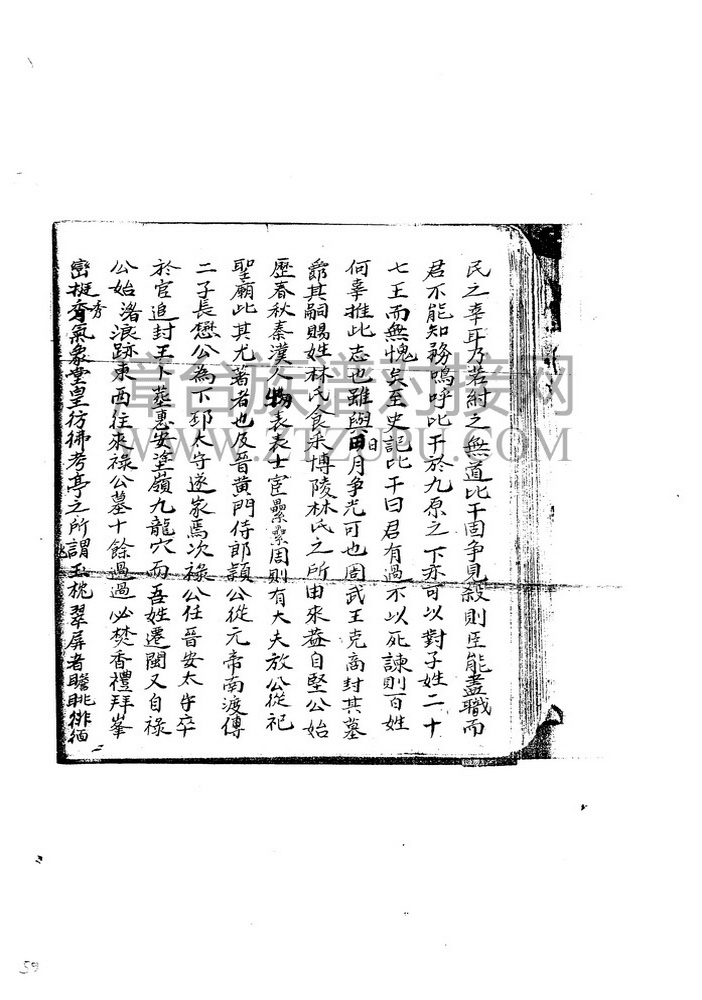 民之辜耳乃若紂之無道比干固争見殺則臣能盡職而
君不能知務嗚呼比干於九原之下亦可以對子姓二十
七王而無愧矣至史記比干曰君有過不以死諫則百姓
何辜推此志也雖與日月争光可也周武王克商封其墓
爵其嗣賜姓林氏食采博陵林氏之所由來益自堅公始
歷春秋秦漢人物表表士宦纍纍周則有大夫放公從祀
聖廟此其尤著者也及晉黃門侍郎頴公從元帝南渡傳
二子長懋公為下邳太守遂家焉次祿公任晉安太守卒
於官追封王卜葬惠安塗嶺九龍穴而吾姓遷閩又自祿
公始渚浪跡東西往來祿公墓十餘過過必焚香禮拜峯
巒挺秀氣象堂皇彷彿考亭之所謂玉枕翠屏者瞻眺徘徊
章台族谱对接网
WWW.ZTZUPU.COM
59